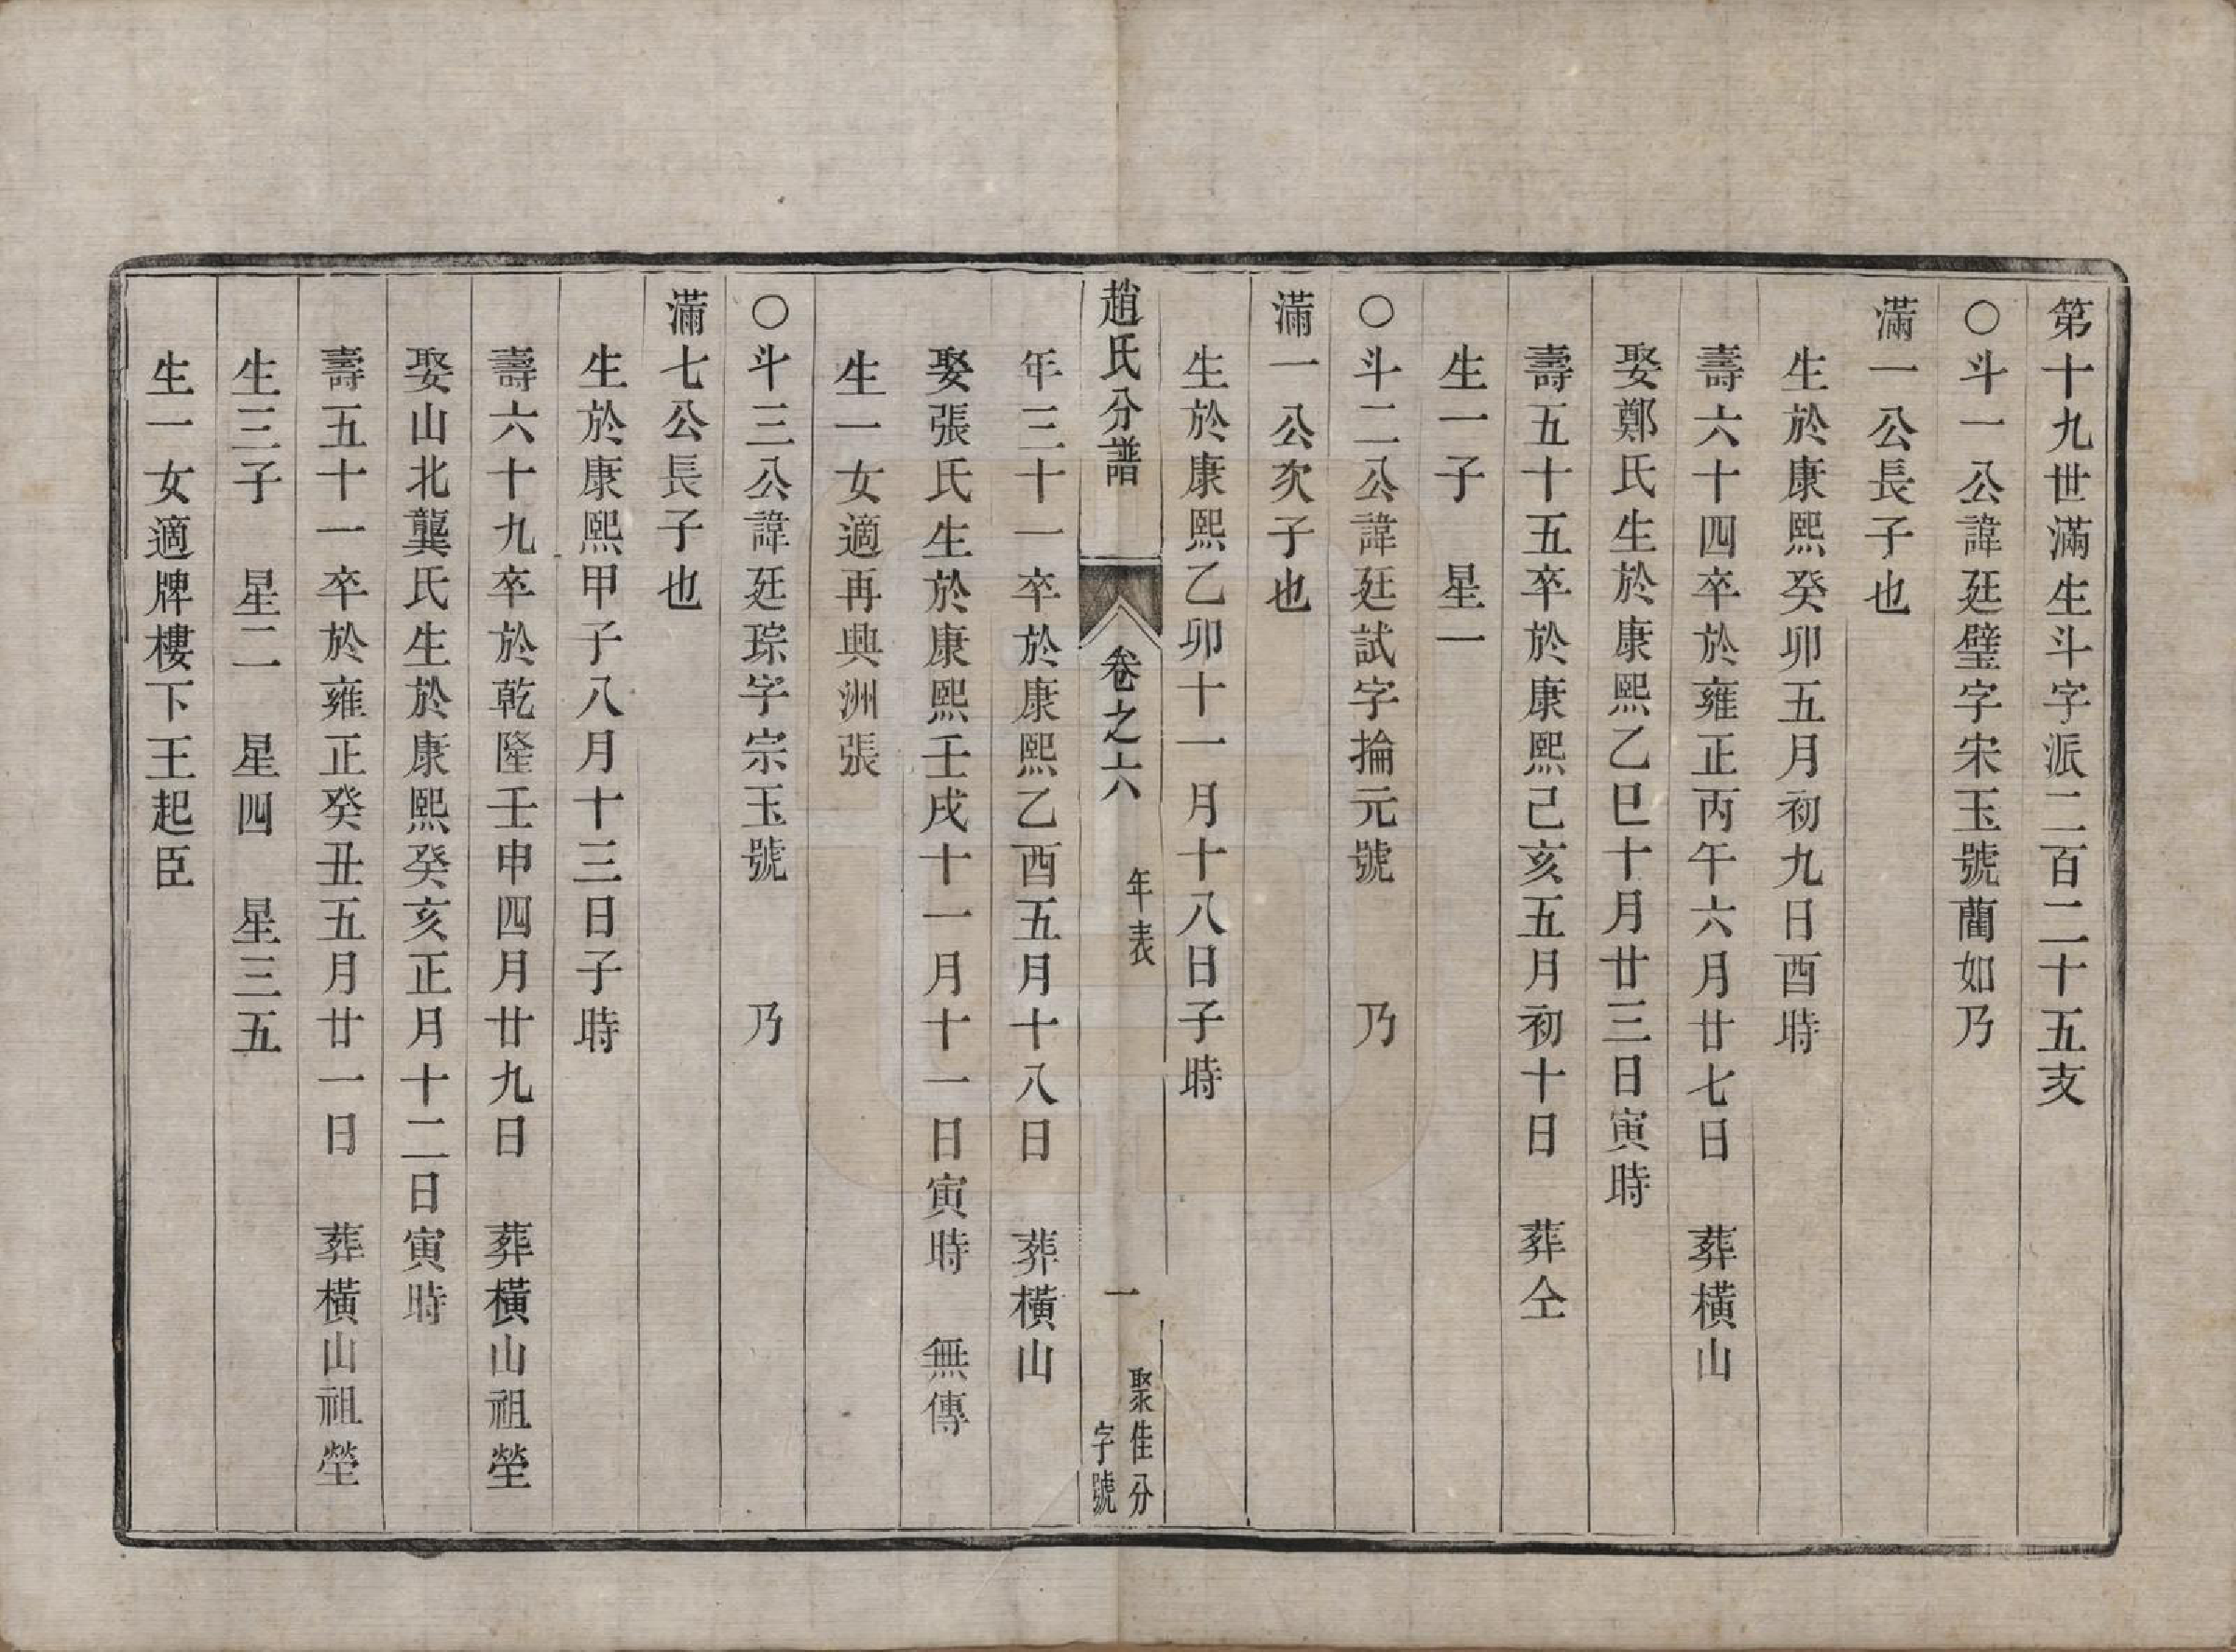 第十九世滿生斗字派二百二十五支
○斗一公諱廷璧字宋玉號藺如乃
滿一公長子也
生於康熙癸卯五月初九日酉時
壽六十四卒於雍正丙午六月廿七日　葬橫山
娶鄭氏生於康熙乙巳十月廿三日寅時
壽五十五卒於康熙己亥五月初十日　葬仝
生一子　星一
○斗二公諱廷試字掄元號　　乃
滿一公次子也
生於康熙乙卯十一月十八日子時
趙氏分譜　卷之六　年表　一　聚佳分字號
年三十一卒於康熙乙酉五月十八日　葬橫山
娶張氏生於康熙壬戌十一月十一日寅時　無傳
生一女適再興洲張
○斗三公諱廷琮字宗玉號　　乃
滿七公長子也
生於康熙甲子八月十三日子時
壽六十九卒於乾隆壬申四月廿九日　葬橫山祖塋
娶山北龔氏生於康熙癸亥正月十二日寅時
壽五十一卒於雍正癸丑五月廿一日　葬橫山祖塋
生三子　星二　星四　星三五
生一女適牌樓下王起臣